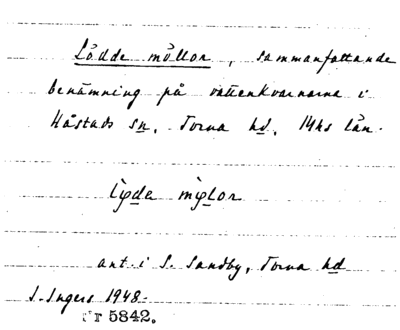 Lödde möllor, sammanfattande
benämning på vattenkvarnarna i
Håstads sn, Torna hd, Mhs län.
lỳde mỳlor
ant. i S. Sandby, Torna hd
I. Ingers 1948.
r 5842.